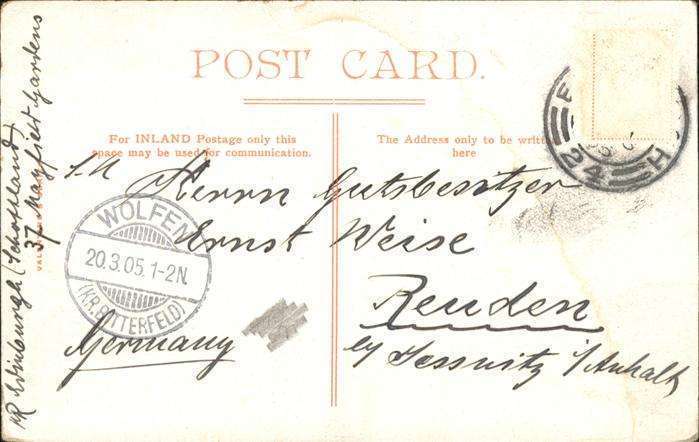 POST CARD.
For INLAND Postage only this
space may be used for communication.
The Address only to be
here
S.H
Herrn Gutsbesitzer
Ernst Weise
Reuden
by Jessnitz i/Anhalt
Germany
WOLFEN
20.3.05.1-2N.
(KR. BITTERFELD)
Edinburgh (Schottland)
37 Mayfield Gardens
24
H
E
VAL